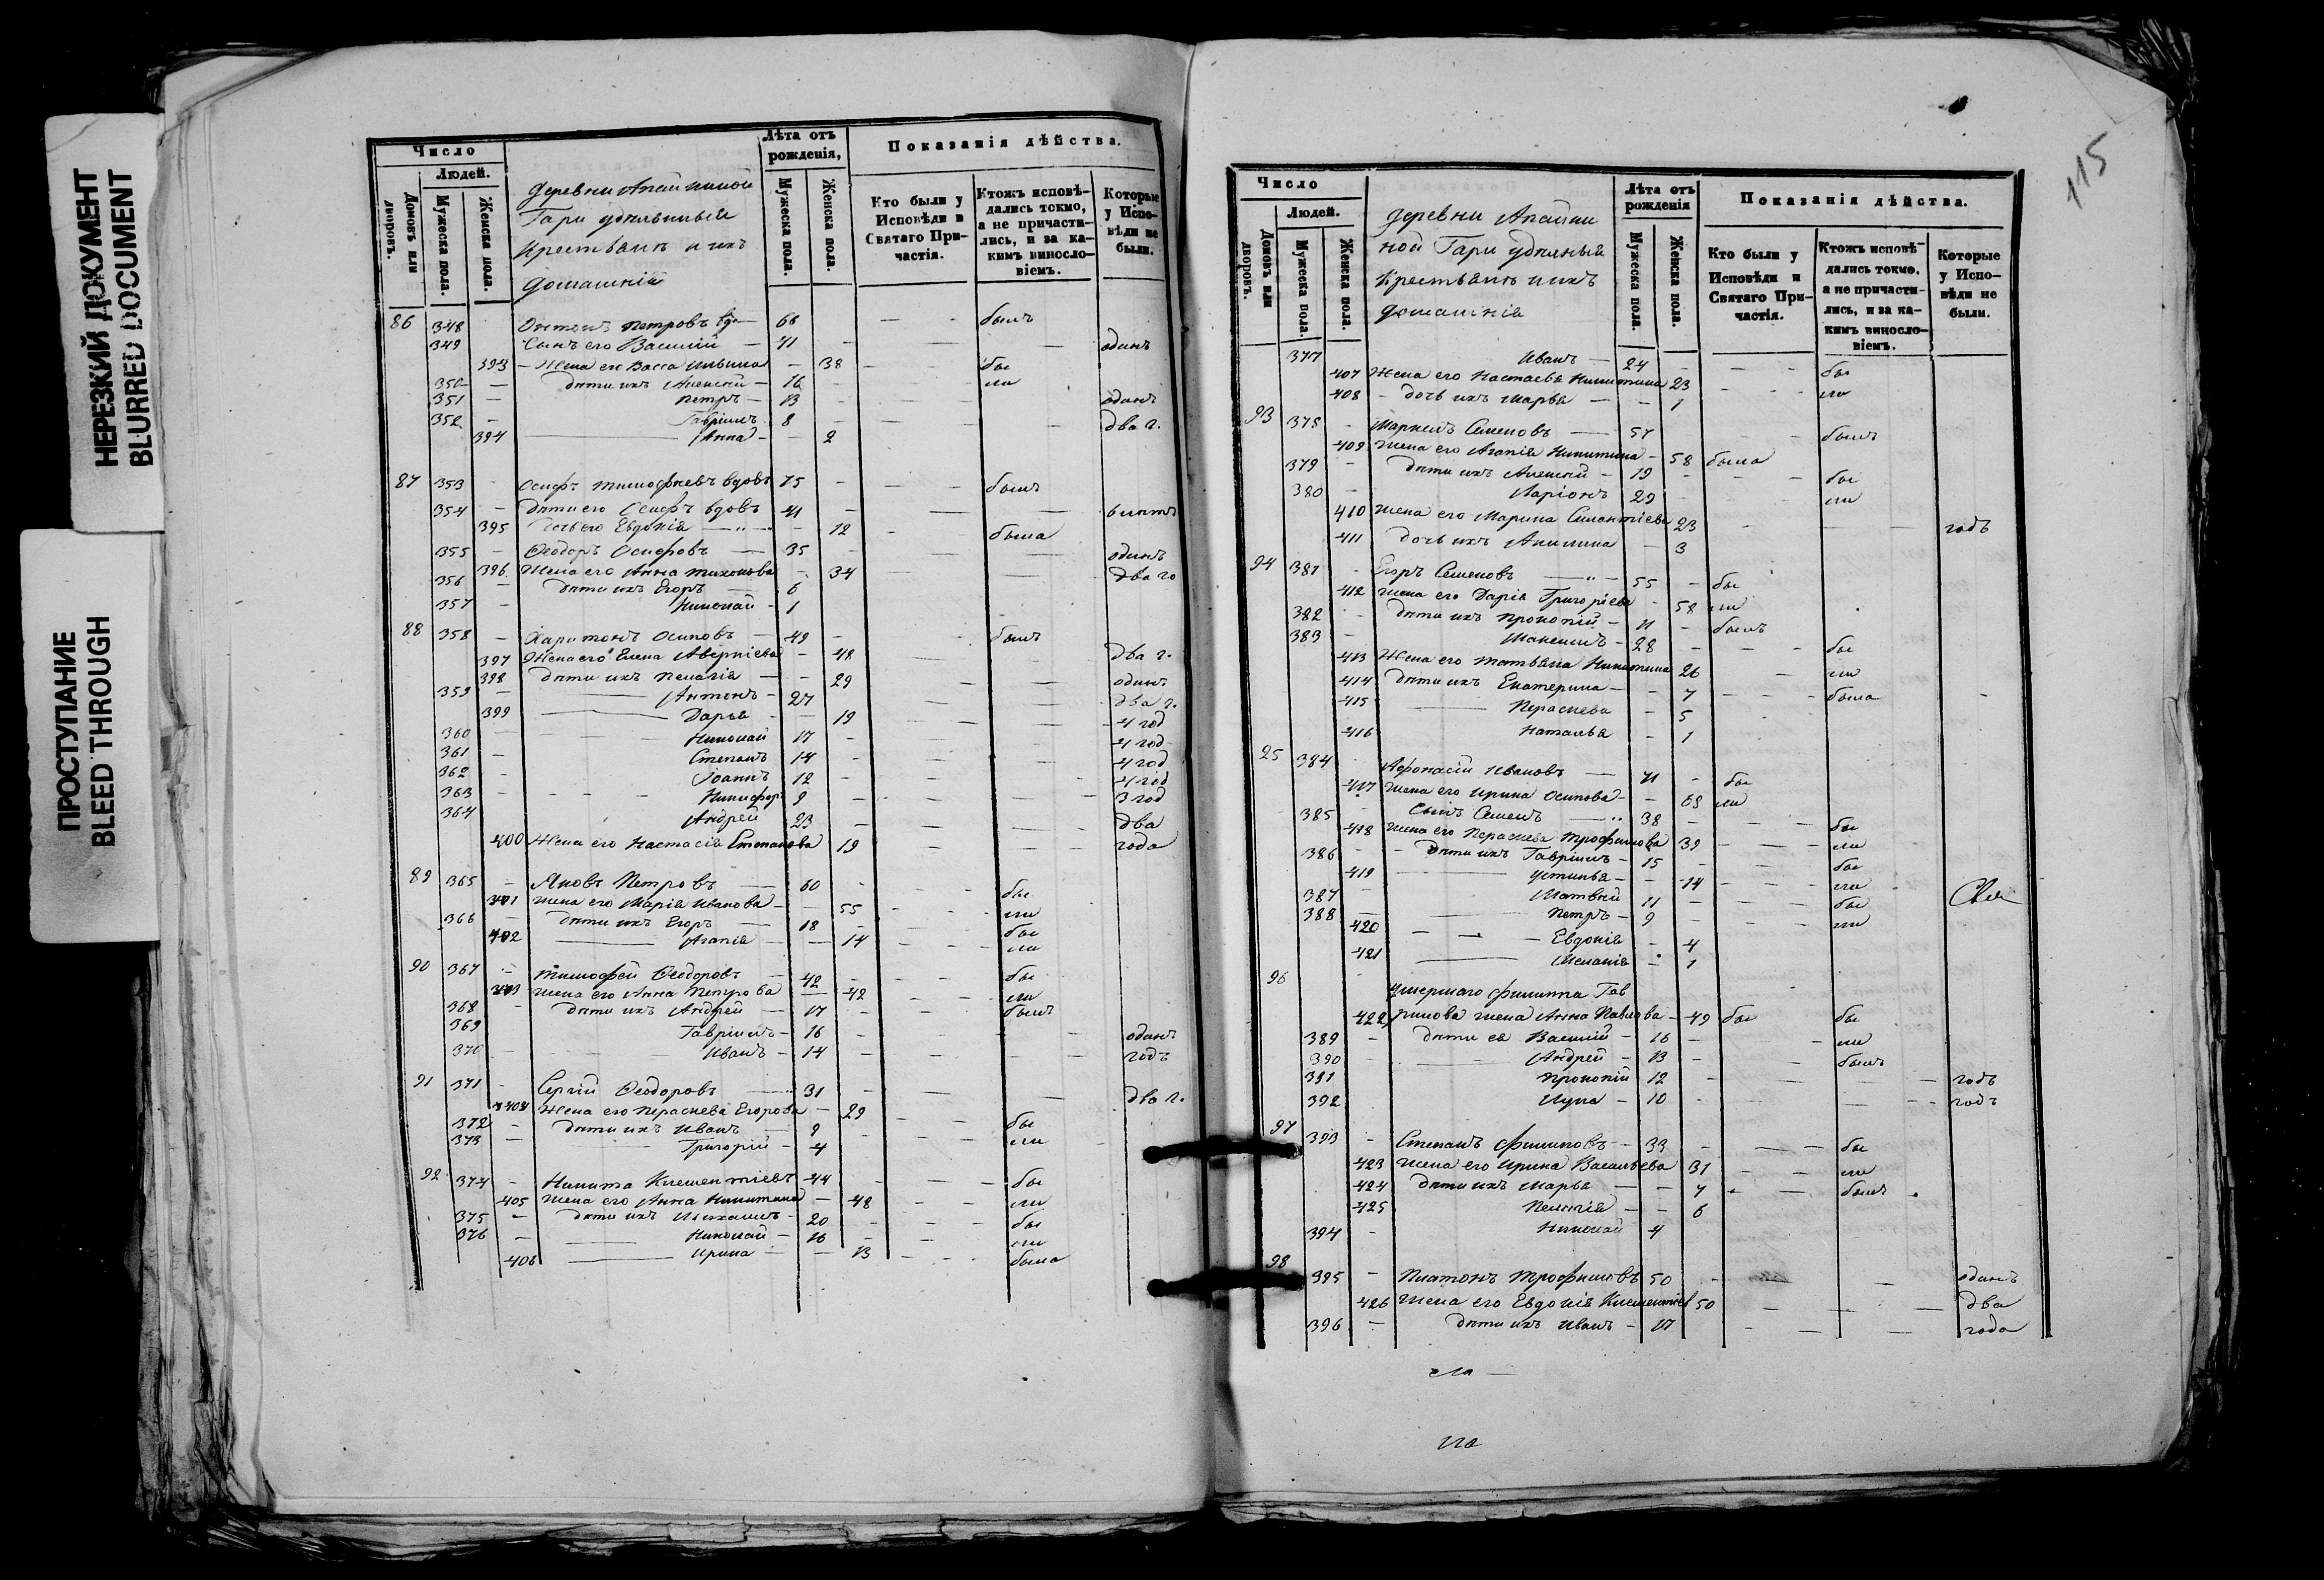 НЕРЕЗКИЙ ДОКУМЕНТ
BLURRED DOCUMENT
ПРОСТУПАНИЕ
BLEED THROUGH
Число
Людей.
Домовъ или дворовъ.
Мужеска пола.
Женска пола.
Деревни
Гари удѣльныя
Крестьянъ и ихъ
домашнія
Лѣта отъ рожденія,
Мужеска пола.
Женска пола.
Показанія дѣйства.
Кто были у Исповѣди и Святаго Причастія.
Ктожъ исповѣдались токмо, а не причастились, и за какимъ винословіемъ.
Которые у Исповѣди не были.
86 348 Петровъ вд 68 былъ
349 Сынъ его Василій 41 одинъ
393 Жена его Васса Ильина 38 бы
350 дѣти ихъ Алексѣй 16 ли
351 Петръ 13 одинъ
352 Гавріилъ 8 два г.
394 Анна 2
87 353 Осифъ Тимофѣевъ вдовъ 75 былъ
354 дѣти его Осифъ вдовъ 41
395 дочь его Евдокія 12 была
355 Ѳеодоръ Осифовъ 35 одинъ
396 Жена его Анна Тихонова 34 два го
356 дѣти ихъ Егоръ 6
357 Николай 1
88 358 Харитонъ Осиповъ 49 былъ
397 Жена его Елена Аверкіева 48 два г.
398 дѣти ихъ Пелагія 29 одинъ
359 Антонъ 27 два г.
399 Дарья 19 4 год
360 Николай 17 4 год
361 Степанъ 14 4 год
362 Іоаннъ 12 4 год
363 Никифоръ 9 3 год
364 Андрей 23 два
400 Жена его Настасія Степанова 19 года
89 365 Яковъ Петровъ 60 бы
401 Жена его Марія Иванова 55 ли
366 дѣти ихъ Егоръ 18 бы
402 Агапія 14 ли
90 367 Тимофей Ѳеодоровъ 42 бы
403 Жена его Анна Петрова 42 ли
368 дѣти ихъ Андрей 17 былъ
369 Гавріилъ 16 одинъ
370 Иванъ 14 годъ
91 371 Сергій Ѳеодоровъ 31 два г.
404 Жена его Параскева Егорова 29
372 дѣти ихъ Иванъ 9 бы
373 Григорій 4 ли
92 374 Никита Клементіевъ 44 бы
405 Жена его Анна Никитина 48 ли
375 дѣти ихъ 20 бы
376 Николай 16 ли
406 Ирина 13 была
115
Число
Людей.
Домовъ или дворовъ.
Мужеска пола.
Женска пола.
Деревни
ной Гари удѣльныя
Крестьянъ и ихъ
домашнія
Лѣта отъ рожденія
Мужеска пола.
Женска пола.
Показанія дѣйства.
Кто были у Исповѣди и Святаго Причастія.
Ктожъ исповѣдались токмо, а не причастились, и за какимъ винословіемъ.
Которые у Исповѣди не были.
377 Иванъ 24 бы
407 Жена его Настасья Никитина 23
408 дочь ихъ Марья 1 ли
93 378 Маркелъ Семеновъ 57 былъ
409 Жена его Агапія Никитина 58 была
379 дѣти ихъ Алексѣй 19 бы
380 Ларіонъ 29 ли
410 Жена его Марина 23 годъ
411 дочь ихъ Акилина 3
94 381 Егоръ Семеновъ 55 бы
412 Жена его Дарія Григоріева 58 ли
382 дѣти ихъ Прокопій 11 былъ
383 Максимъ 28 бы
413 Жена его Татьяна Никитина 26 ли
414 дѣти ихъ Екатерина 7 была
415 Параскева 5
416 Наталья 1
95 384 Афонасій Ивановъ 71 бы
417 Жена его Ирина Осипова 69 ли
385 Сынъ Семенъ 38
418 Жена его Параскева Трофимова 39 бы ли
386 дѣти ихъ Гавріилъ 15 бы
419 Устинья 14 ли
387 Матвѣй 11 бы
388 Петръ 9 ли
420 Евдокія 4
421 Меланія 1
96 Умершаго Филиппа Гав
422 рилова жена Анна Павлова 49 бы бы
389 дѣти ея Василій 16 ли
390 Андрей 13 былъ
391 Прокопій 12 годъ
392 Лука 10 годъ
97 393 Степанъ Филиповъ 33 бы
423 Жена его Ирина Васильева 31 ли
424 дѣти ихъ Марья 7 былъ
425 Пелагія 6
394 Николай 4
98 395 Платонъ Трофимовъ 50 одинъ
426 Жена его Евдокія Клементіев 50 два
396 дѣти ихъ Иванъ 17 года